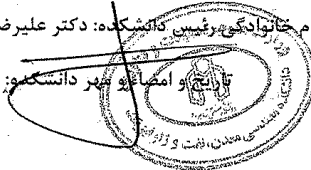 م خانوادگی رئیس دانشکده: دکتر علیرضا
تاریخ و امضاء و مهر دانشکده:
دانشکده مهندسی معدن، نفت و ژئوفیزیک